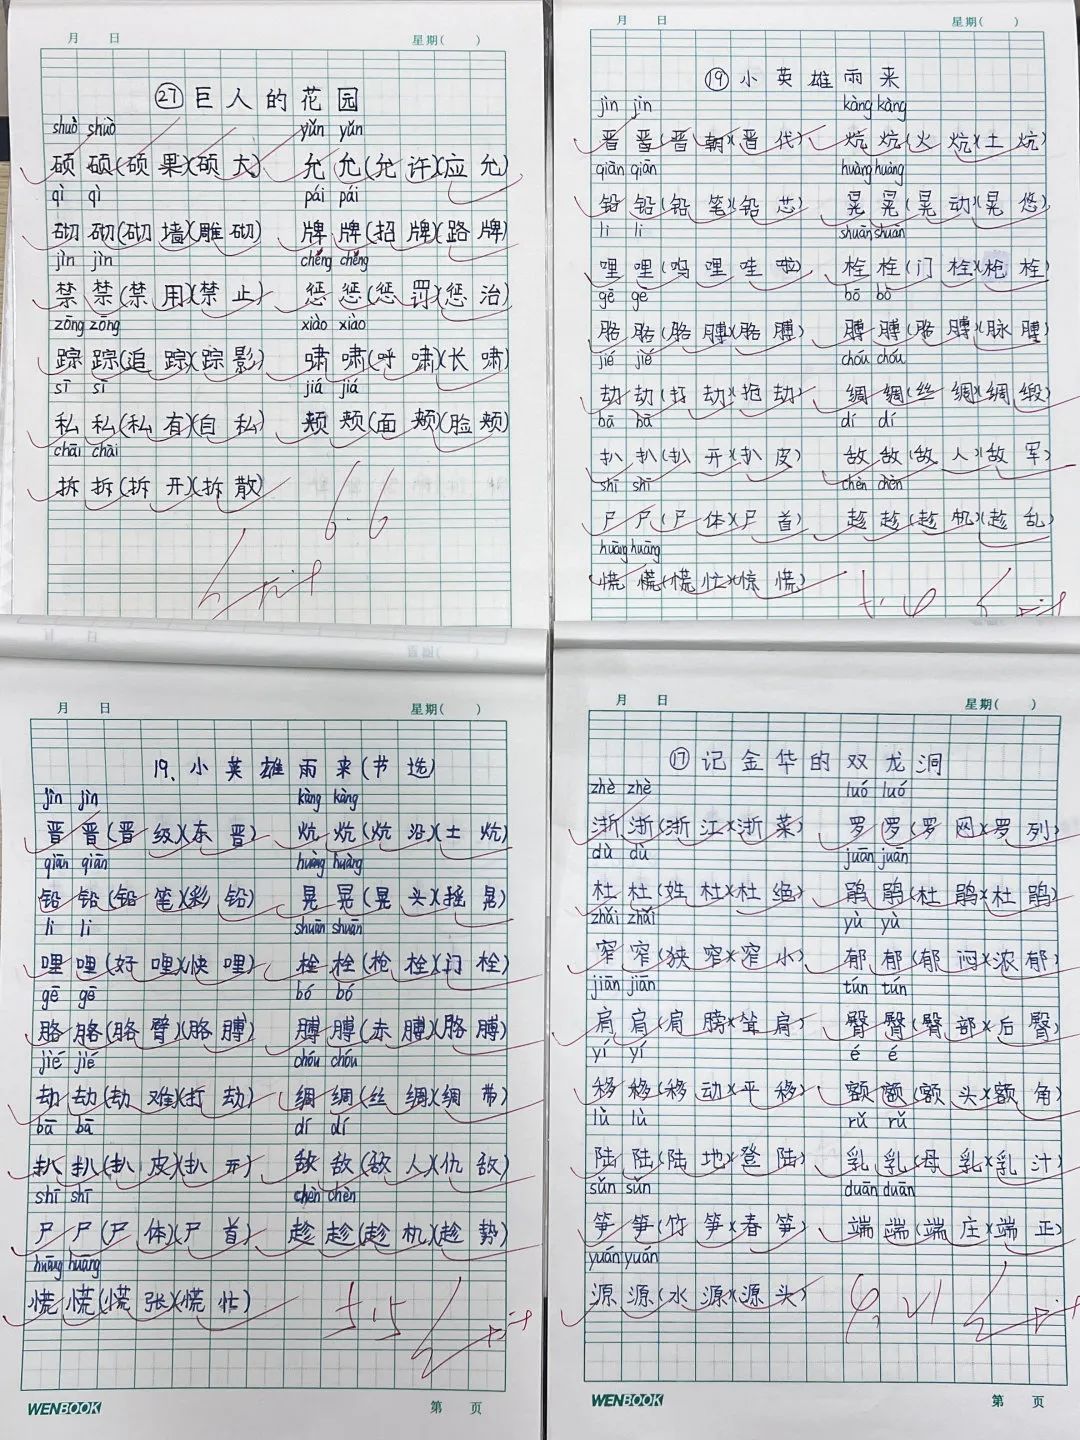 月 日 星期( )
㉗ 巨人的花园
shuò shuò yǔn yǔn
硕 硕(硕果)(硕大) 允 允(允许)(应允)
qì qì pái pái
砌 砌(砌墙)(雕砌) 牌 牌(招牌)(路牌)
jìn jìn chěng chěng
禁 禁(禁用)(禁止) 惩 惩(惩罚)(惩治)
zōng zōng xiào xiào
踪 踪(追踪)(踪影) 啸 啸(呼啸)(长啸)
sī sī jiá jiá
私 私(私有)(自私) 颊 颊(面颊)(脸颊)
chāi chāi
拆 拆(拆开)(拆散)
6.6
月 日 星期( )
⑲ 小英雄雨来
jìn jìn kàng kàng
晋 晋(晋朝)(晋代) 炕 炕(火炕)(土炕)
qiān qiān huàng huàng
铅 铅(铅笔)(铅芯) 晃 晃(晃动)(晃悠)
li li shuān shuān
哩 哩(呜哩哇啦) 栓 栓(门栓)(枪栓)
gē gē bō bō
胳 胳(胳膊)(胳膊) 膊 膊(胳膊)(脉膊)
jié jié chóu chóu
劫 劫(打劫)(抢劫) 绸 绸(丝绸)(绸缎)
bā bā dí dí
扒 扒(扒开)(扒皮) 敌 敌(敌人)(敌军)
shī shī chèn chèn
尸 尸(尸体)(尸首) 趁 趁(趁机)(趁乱)
huāng huāng
慌 慌(慌忙)(惊慌)
月 日 星期( )
19、小英雄雨来(节选)
jìn jìn kàng kàng
晋 晋(晋级)(东晋) 炕 炕(炕沿)(土炕)
qiān qiān huàng huàng
铅 铅(铅笔)(彩铅) 晃 晃(晃头)(摇晃)
li li shuān shuān
哩 哩(好哩)(快哩) 栓 栓(枪栓)(门栓)
gē gē bó bó
胳 胳(胳臂)(胳膊) 膊 膊(赤膊)(胳膊)
jié jié chóu chóu
劫 劫(劫难)(打劫) 绸 绸(丝绸)(绸带)
bā bā dí dí
扒 扒(扒皮)(扒开) 敌 敌(敌人)(仇敌)
shī shī chèn chèn
尸 尸(尸体)(尸首) 趁 趁(趁机)(趁势)
huāng huāng
慌 慌(慌张)(慌忙)
WENBOOK 第 页
月 日 星期( )
⑰ 记金华的双龙洞
zhè zhè luó luó
浙 浙(浙江)(浙菜) 罗 罗(罗网)(罗列)
dù dù juān juān
杜 杜(姓杜)(杜绝) 鹃 鹃(杜鹃)(杜鹃)
zhǎi zhǎi yù yù
窄 窄(狭窄)(窄小) 郁 郁(郁闷)(浓郁)
jiān jiān tún tún
肩 肩(肩膀)(耸肩) 臀 臀(臀部)(后臀)
yí yí é é
移 移(移动)(平移) 额 额(额头)(额角)
lù lù rǔ rǔ
陆 陆(陆地)(登陆) 乳 乳(母乳)(乳汁)
sǔn sǔn duān duān
笋 笋(竹笋)(春笋) 端 端(端庄)(端正)
yuán yuán
源 源(水源)(源头)
WENBOOK 第 页